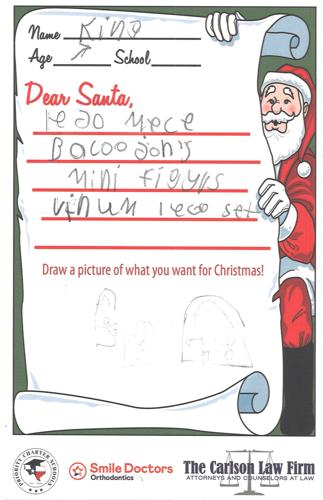 Name King
Age 7 School
Dear Santa,
lego
mini figurs
lego set
Draw a picture of what you want for Christmas!
PRIORITY CHARTER SCHOOLS
Smile Doctors
Orthodontics
The Carlson Law Firm
ATTORNEYS AND COUNSELORS AT LAW